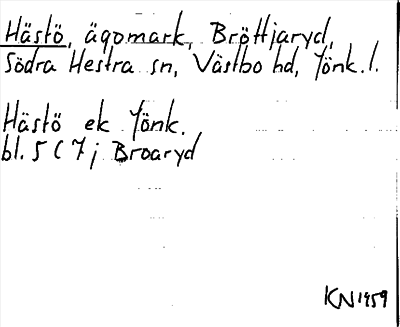 Hästö, ägomark, Bröttjaryd,
Södra Hestra sn, Västbo hd, Jönk. l.
Hästö ek Jönk.
bl. 5 C 7 j Broaryd
KN 1959